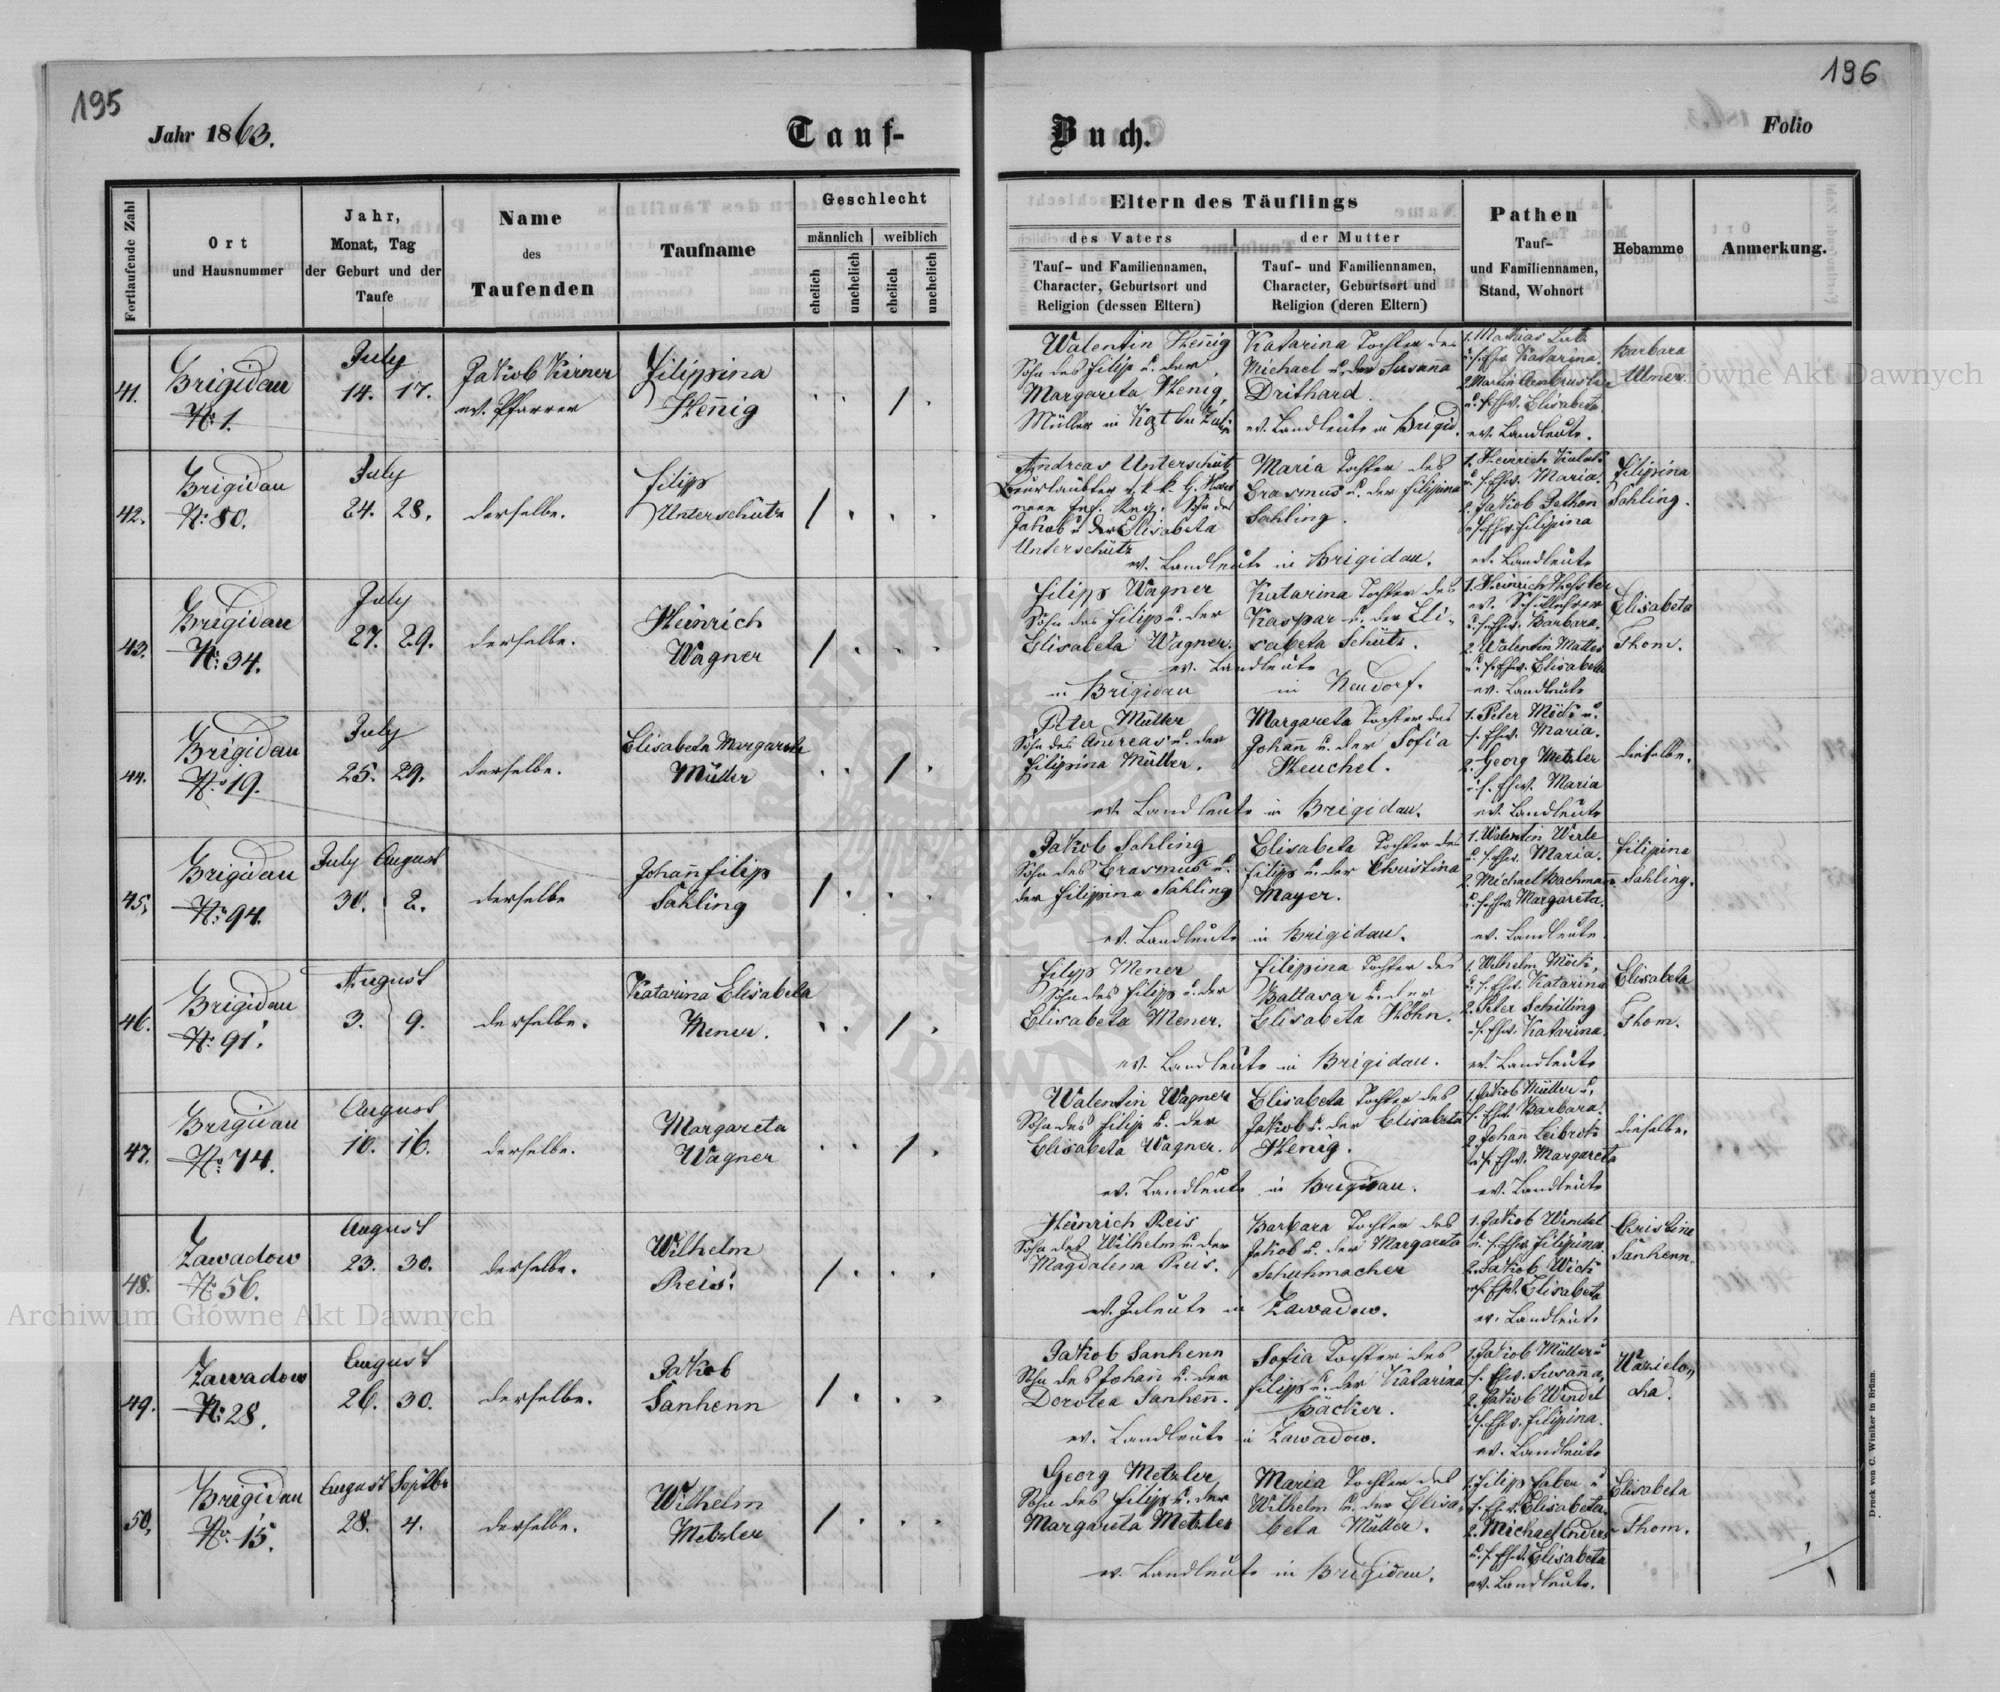 195
196
Jahr 1863.
Tauf-
Buch.
Folio
Fortlaufende Zahl
Ort
und Hausnummer
Jahr,
Monat, Tag
der Geburt und der
Taufe
Name
des
Taufenden
Taufname
Geschlecht
männlich
weiblich
ehelich
unehelich
ehelich
unehelich
Eltern des Täuflings
des Vaters
der Mutter
Tauf- und Familiennamen,
Character, Geburtsort und
Religion (dessen Eltern)
Tauf- und Familiennamen,
Character, Geburtsort und
Religion (deren Eltern)
Pathen
Tauf-
und Familiennamen,
Stand, Wohnort
Hebamme
Anmerkung.
41.
Brigidau
No 1.
July
14. 17.
Jakob Kirner
ev. Pfarrer
Filippina
Henig
Walentin Henig
Sohn des Filip u. der
Margareta Henig,
Müller in
Katarina Tochter des
Michael u. der Susanna
Drithard.
ev. Landleute in Brigid.
1. Mathias
u. s. Ehw. Katarina.
2. Martin Armbruster
u. s. Ehw. Elisabeta
ev. Landleute.
Barbara
Ulmer
42.
Brigidau
No 80.
July
24. 28.
derselbe.
Filipp
Unterschütz
Andreas Unterschütz
Beurlaubter d. k. k.
Sohn des
Jakob u. der Elisabeta
Unterschütz
Maria Tochter des
Erasmus u. der Filipina
Sahling.
ev. Landleute in Brigidau.
1. Heinrich
u. s. Ehw. Maria.
2. Jakob Bethon
u. s. Ehw. Filipina
ev. Landleute
Filipina
Sahling.
43.
Brigidau
No 34.
July
27. 29.
derselbe.
Heinrich
Wagner
Filipp Wagner
Sohn des Filip u. der
Elisabeta Wagner.
ev. Landleute
in Brigidau
Katarina Tochter des
Kaspar u. der Eli-
sabeta Schütz.
in Neudorf.
1. Heinrich
ev. Schullehrer
u. s. Ehw. Barbara.
2. Walentin Mattes
u. s. Ehw. Elisabeta
ev. Landleute
Elisabeta
Thom.
44.
Brigidau
No 19.
July
25. 29.
derselbe.
Elisabeta Margareta
Müller
Peter Müller
Sohn des Andreas u. der
Filipina Müller.
Margareta Tochter des
Johann u. der Sofia
Heuchel.
ev. Landleute in Brigidau.
1. Peter Möck u.
s. Ehw. Maria.
2. Georg Metzler
u. s. Ehw. Maria
ev. Landleute
dieselbe.
45.
Brigidau
No 94.
July August
30. 2.
derselbe
Johann Filip
Sahling
Jakob Sahling
Sohn des Erasmus u.
der Filipina Sahling
Elisabeta Tochter des
Filipp u. der Christina
Mayer.
ev. Landleute in Brigidau.
1. Walentin Werle
u. s. Ehw. Maria.
2. Michael Bachmann
u. s. Ehw. Margareta.
ev. Landleute
Filipina
Sahling.
46.
Brigidau
No 91.
August
3. 9.
derselbe.
Katarina Elisabeta
Mener.
Filipp Mener
Sohn des Filipp u. der
Elisabeta Mener.
Filipina Tochter des
Baltasar u. der
Elisabeta Köhn.
ev. Landleute in Brigidau.
1. Wilhelm Möck,
u. s. Ehw. Katarina
2. Peter Schilling
u. s. Ehw. Katarina.
ev. Landleute
Elisabeta
Thom.
47.
Brigidau
No 74.
August
10. 16.
derselbe.
Margareta
Wagner
Walentin Wagner
Sohn des Filip u. der
Elisabeta Wagner.
Elisabeta Tochter des
Jakob u. der Elisabeta
Henig.
ev. Landleute in Brigidau.
1. Jakob Müller u.
s. Ehw. Barbara.
2. Johan Leibrok
u. s. Ehw. Margareta
ev. Landleute
dieselbe.
48.
Zawadow
No 56.
August
23. 30.
derselbe.
Wilhelm
Reis.
Heinrich Reis
Sohn des Wilhelm u. der
Magdalena Reis.
Barbara Tochter des
Jakob u. der Margareta
Schuhmacher
ev. Inleute in Zawadow.
1. Jakob Windel
u. s. Ehw. Filipina.
2. Jakob Wick
u. s. Ehw. Elisabeta
ev. Landleute
Christine
Sanhenn.
49.
Zawadow
No 28.
August
26. 30.
derselbe.
Jakob
Sanhenn
Jakob Sanhenn
Sohn des Johan u. der
Dorotea Sanhenn.
Sofia Tochter des
Filipp u. der Katarina
Bäcker.
ev. Landleute in Zawadow.
1. Jakob Müller u.
s. Ehw. Susanna,
2. Jakob Windel
u. s. Ehw. Filipina.
ev. Landleute
50.
Brigidau
No 15.
August Septbr
28. 4.
derselbe.
Wilhelm
Metzler
Georg Metzler
Sohn des Filip u. der
Margareta Metzler
Maria Tochter des
Wilhelm u. der Elisa-
beta Müller.
ev. Landleute in Brigidau.
1. Filipp Faber u.
s. Ehw. Elisabeta.
2. Michael Enders
u. s. Ehw. Elisabeta
ev. Landleute.
Elisabeta
Thom.
Druck von C. Winiker in Brünn.
Archiwum Główne Akt Dawnych
Archiwum Główne Akt Dawnych